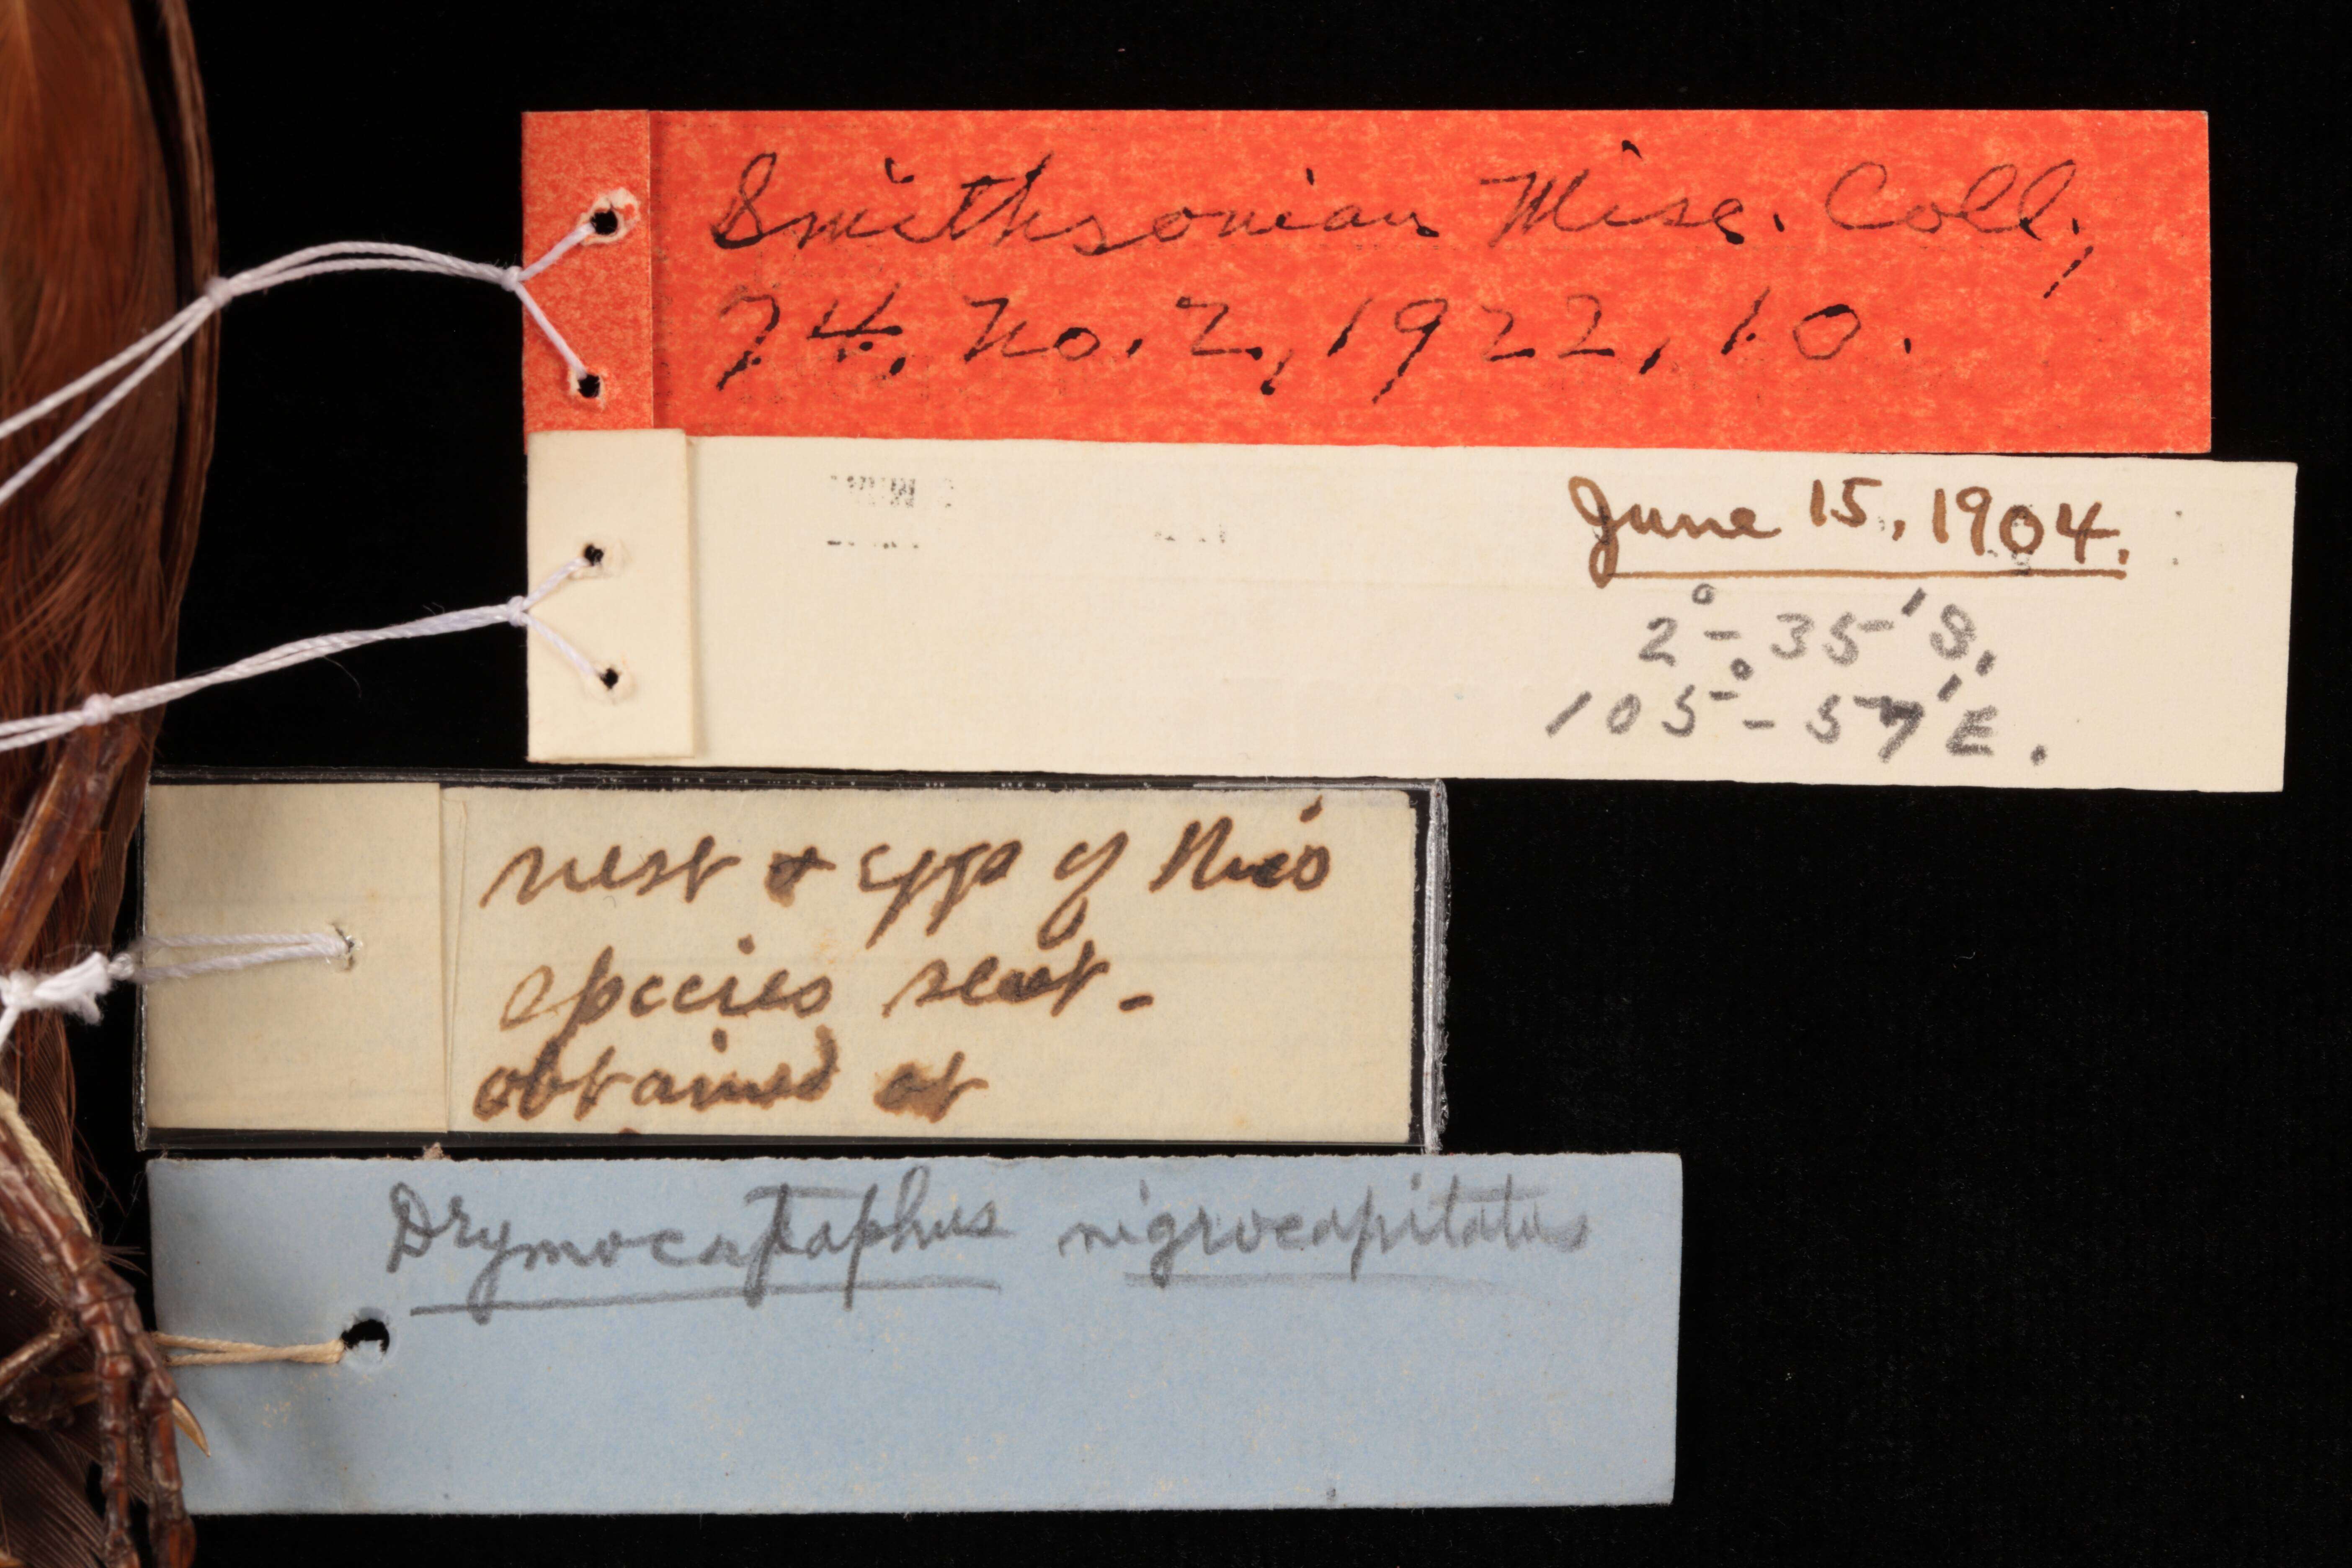 Smithsonian Misc. Coll.,
74, No. 2, 1922, 10.
June 15, 1904.
2°-35' S.
105°-57' E.
nest & eggs of this
species sent -
obtained at
Drymocataphus nigrocapitatus